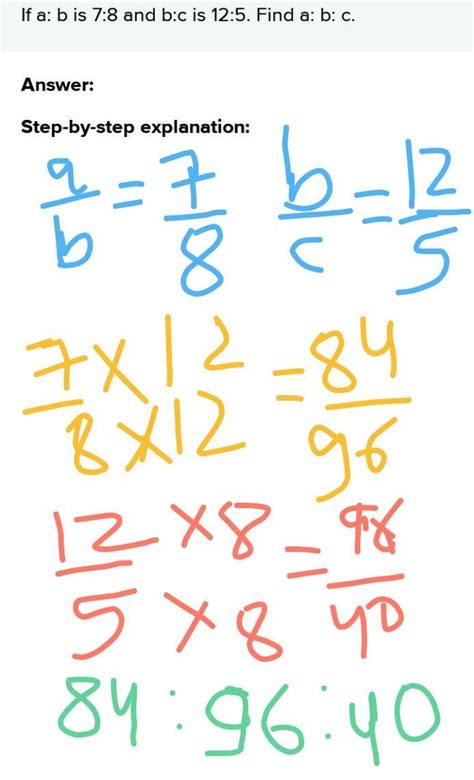 If a: b is 7:8 and b:c is 12:5. Find a: b: c.
Answer:
Step-by-step explanation:
a/b = 7/8 b/c = 12/5
7×12/8×12 = 84/96
12×8/5×8 = 96/40
84:96:40